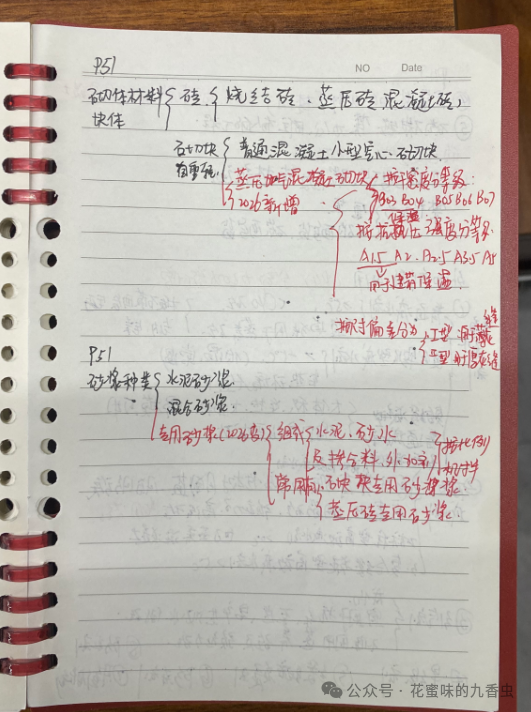 P51
NO Date
砌体材料 砖 烧结砖、蒸压砖 混凝土砖
块体
砌块 普通混凝土小型空心砌块
蒸压加气混凝土砌块 按干密度分等级
2026新增 B03 B04 B05 B06 B07
保温
按抗压强度分等级
A1.5 A2. A2.5 A3.5 A5
用于建筑保温
按尺寸偏差分为 I型 用于薄
II型 用于
P51
砂浆种类 水泥砂浆
混合砂浆
专用砂浆(2026 组成 水泥、砂、水 按比例
及掺合料、外加剂
常用 砌块专用砂浆
蒸压砖专用砂浆
公众号 · 花蜜味的九香虫